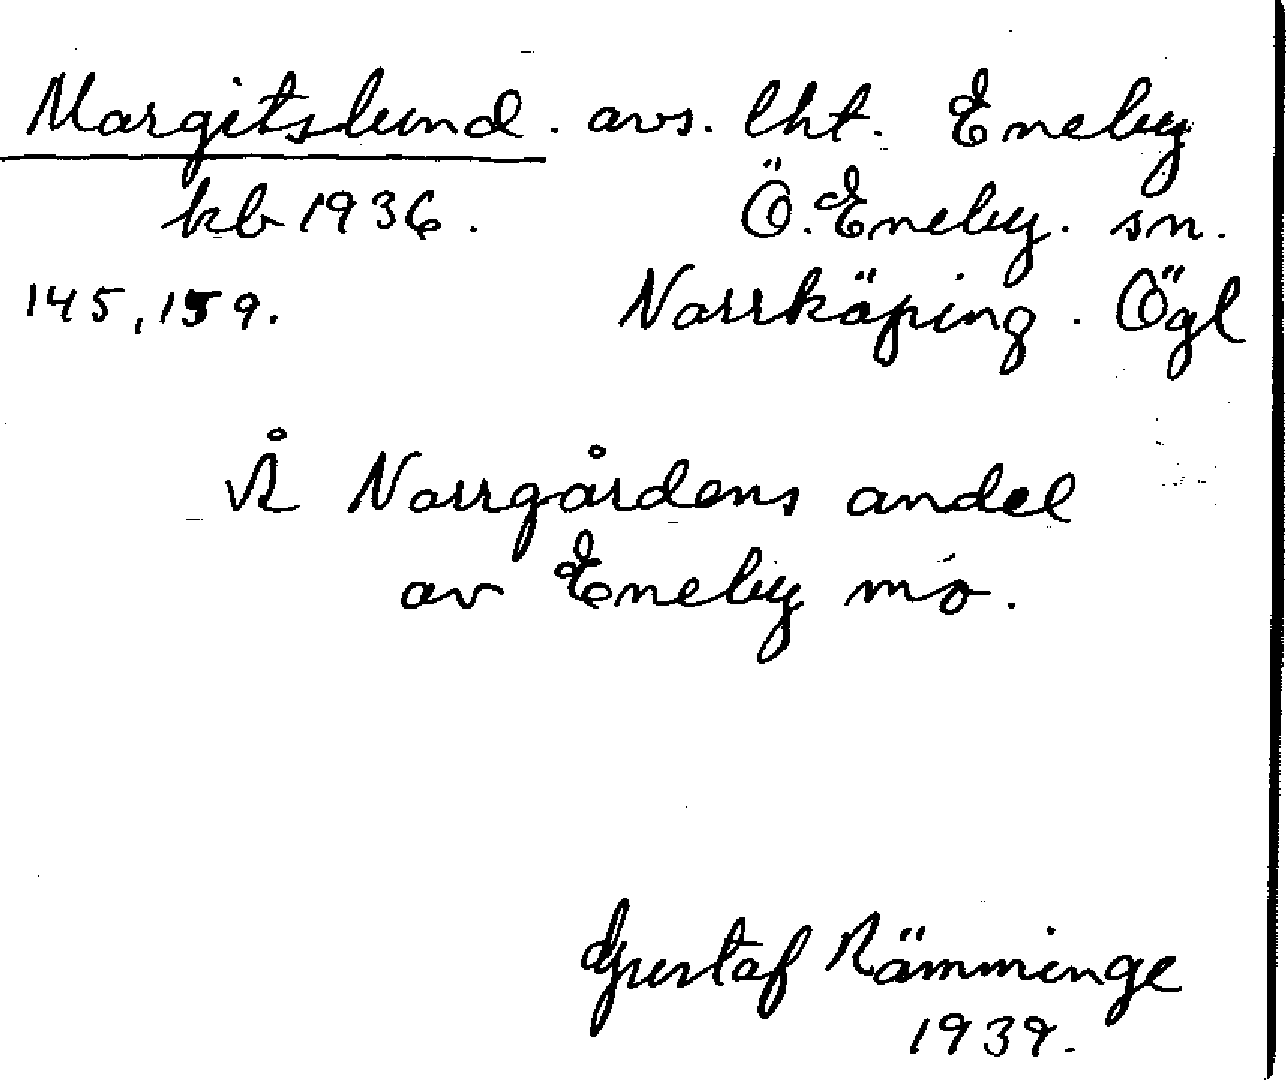 Margitslund. avs. lht. Eneby
kb 1936. Ö. Eneby. sn.
145, 159. Norrköping. Ögl
Å Norrgårdens andel
av Eneby mo.
Gustaf Rämminge
1939.